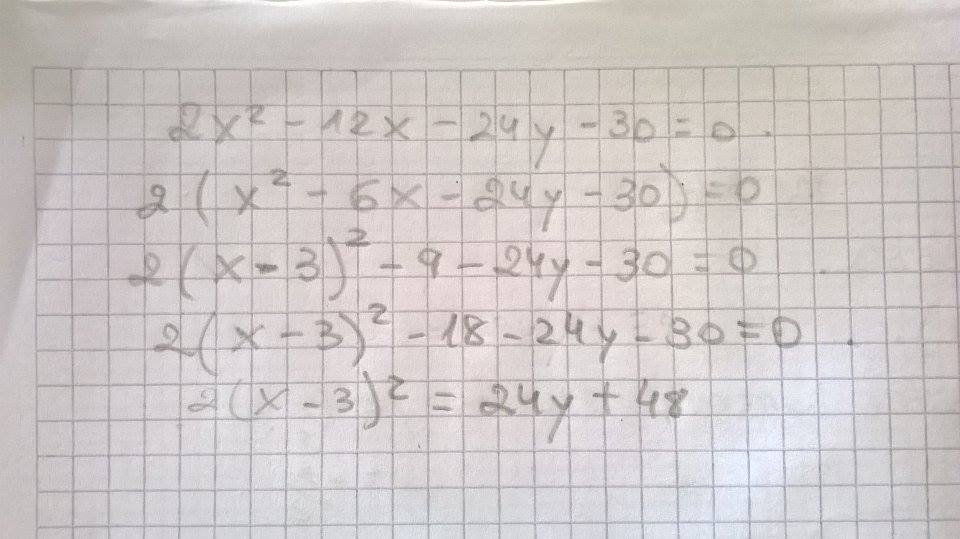 2x² - 12x - 24y - 30 = 0.
2(x² - 6x - 24y - 30) = 0
2(x - 3)² - 9 - 24y - 30 = 0
2(x - 3)² - 18 - 24y - 30 = 0.
2(x - 3)² = 24y + 48